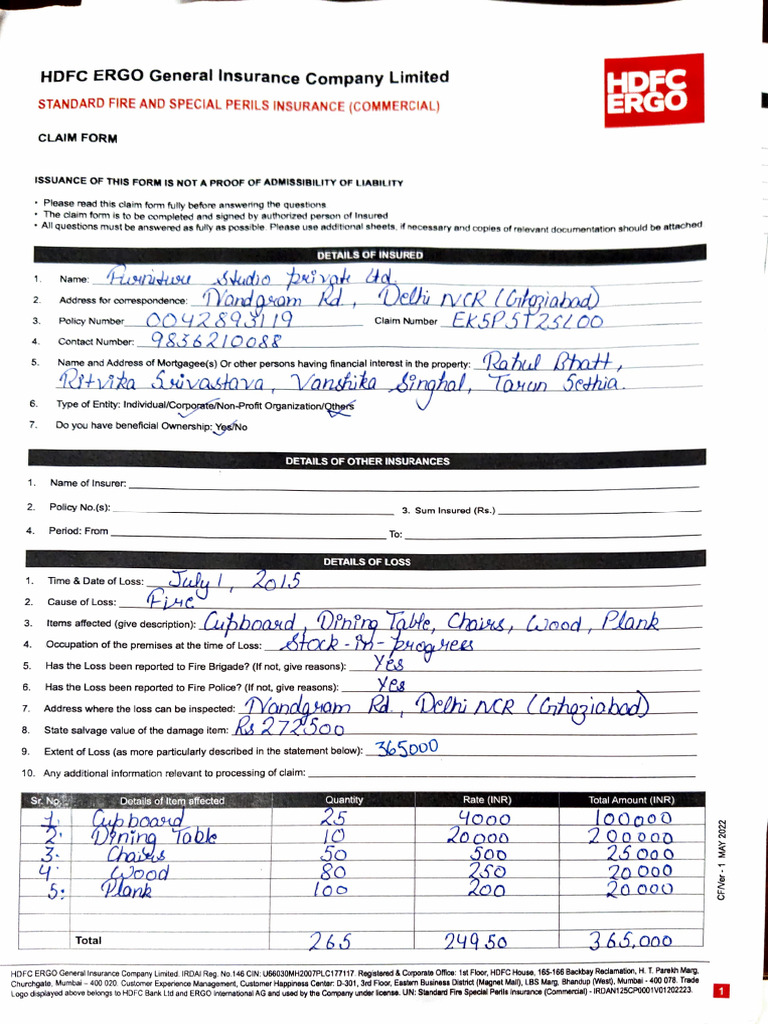 HDFC ERGO General Insurance Company Limited
HDFC
ERGO
STANDARD FIRE AND SPECIAL PERILS INSURANCE (COMMERCIAL)
CLAIM FORM
ISSUANCE OF THIS FORM IS NOT A PROOF OF ADMISSIBILITY OF LIABILITY
• Please read this claim form fully before answering the questions
• The claim form is to be completed and signed by authorized person of Insured
• All questions must be answered as fully as possible. Please use additional sheets, if necessary and copies of relevant documentation should be attached
DETAILS OF INSURED
1. Name: Furniture Studio Private Ltd.
2. Address for correspondence: Nandgram Rd, Delhi NCR (Ghaziabad)
3. Policy Number 0042893119 Claim Number EK5P5T25L00
4. Contact Number: 9836210088
5. Name and Address of Mortgagee(s) Or other persons having financial interest in the property: Rahul Bhatt,
Ritvika Srivastava, Vanshika Singhal, Tarun Sethia.
6. Type of Entity: Individual/Corporate/Non-Profit Organization/Others
7. Do you have beneficial Ownership: Yes/No
DETAILS OF OTHER INSURANCES
1. Name of Insurer:
2. Policy No.(s): 3. Sum Insured (Rs.)
4. Period: From To:
DETAILS OF LOSS
1. Time & Date of Loss: July 1, 2015
2. Cause of Loss: Fire
3. Items affected (give description): Cupboard, Dining Table, Chairs, Wood, Plank
4. Occupation of the premises at the time of Loss: Stock-in-progress
5. Has the Loss been reported to Fire Brigade? (If not, give reasons): Yes
6. Has the Loss been reported to Fire Police? (If not, give reasons): Yes
7. Address where the loss can be inspected: Nandgram Rd, Delhi NCR (Ghaziabad)
8. State salvage value of the damage item: Rs 272500
9. Extent of Loss (as more particularly described in the statement below): 365000
10. Any additional information relevant to processing of claim:
Sr. No. Details of Item affected Quantity Rate (INR) Total Amount (INR)
1. Cupboard 25 4000 100000
2. Dining Table 10 20000 200000
3. Chairs 50 500 25000
4. Wood 80 250 20000
5. Plank 100 200 20000
Total 265 24950 365,000
CF/Ver - 1 MAY 2022
HDFC ERGO General Insurance Company Limited. IRDAI Reg. No.146 CIN: U66030MH2007PLC177117. Registered & Corporate Office: 1st Floor, HDFC House, 165-166 Backbay Reclamation, H. T. Parekh Marg,
Churchgate, Mumbai – 400 020. Customer Experience Management, Customer Happiness Center: D-301, 3rd Floor, Eastern Business District (Magnet Mall), LBS Marg, Bhandup (West), Mumbai - 400 078. Trade
Logo displayed above belongs to HDFC Bank Ltd and ERGO International AG and used by the Company under license. UN: Standard Fire Special Perils Insurance (Commercial) - IRDAN125CP0001V01202223.
1